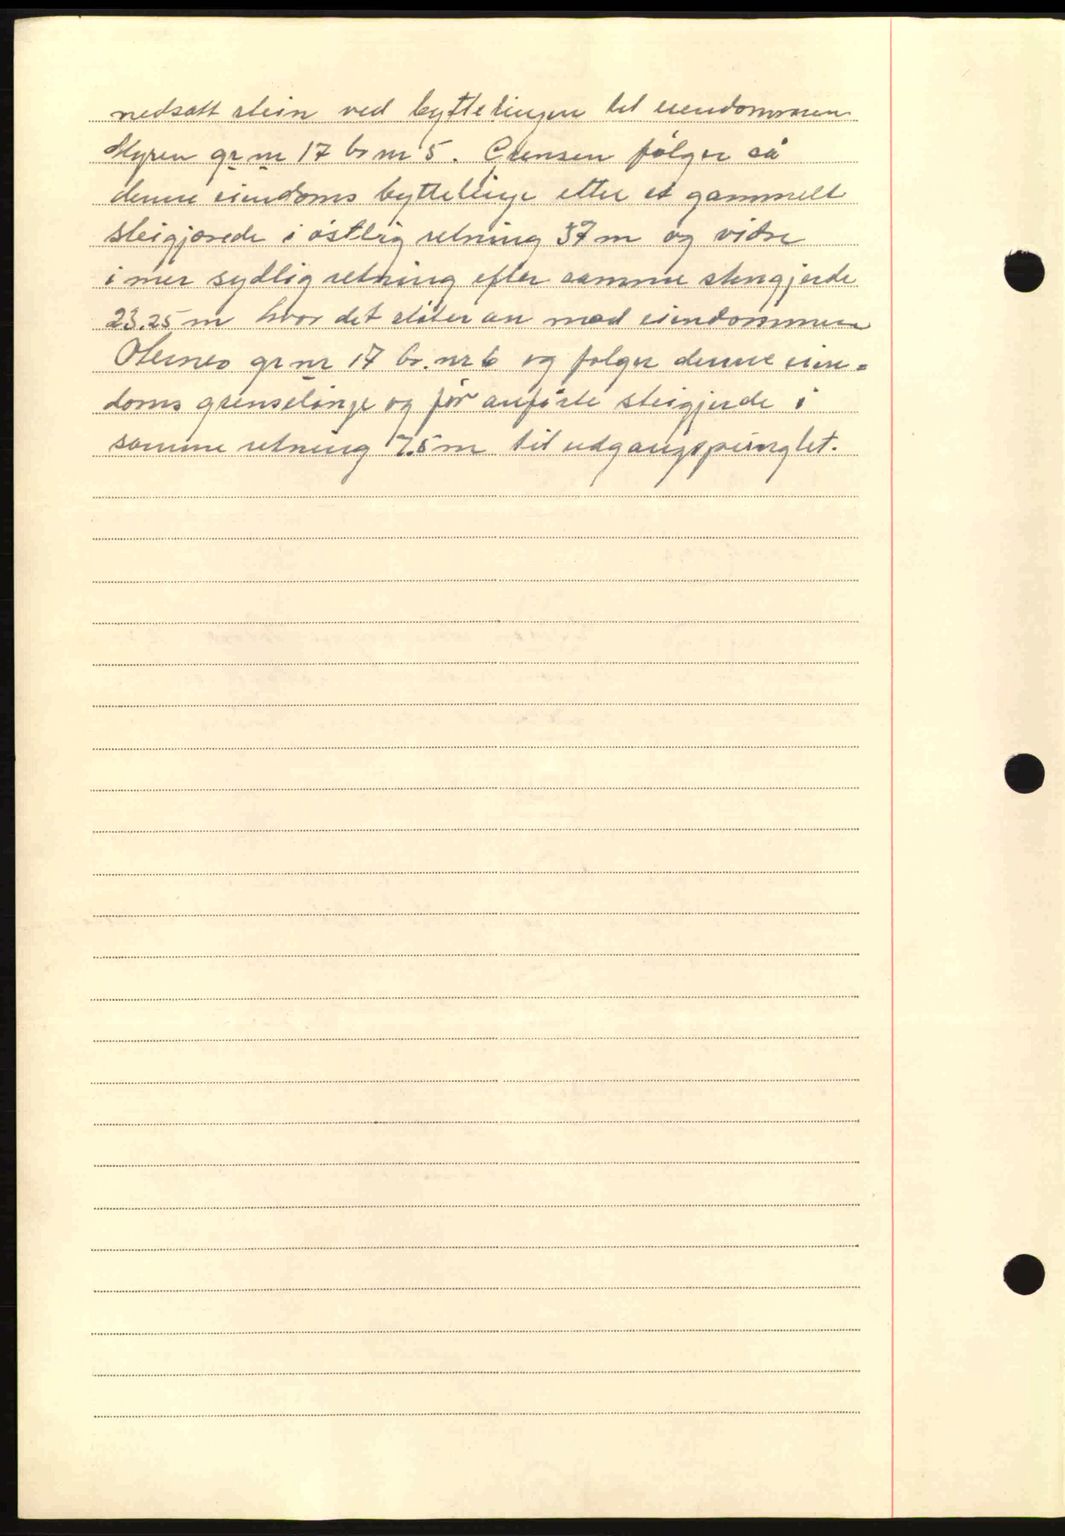 nedsatt stein ved byttelinjen til eiendommen
Myren gr nr 17 br nr 5. Grensen følger så
denne eiendoms byttelinje etter et gammelt
steigjærde i østlig retning 37 m og vidre
i mer sydlig retning efter samme stengjerde
23.25 m hvor det støter an mod eiendommen
gr nr 17 br. nr 6 og følger denne eien=
doms grenselinje og før anførte steigjerde i
samme retning 7.5 m til udgangspunglet.